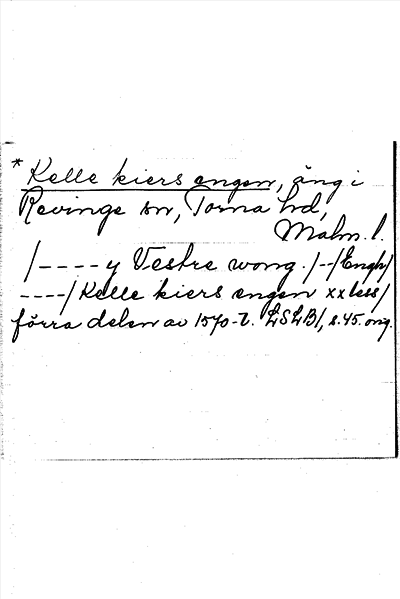 * Kelle kiers engen, äng i
Revinge sn, Torna hd,
Malm. l.
/---- y Vestre wong. /--/Engh/
----/ Kelle kiers engen xx less/
förra delen av 1570-t. LSLB/, s. 45. orig.